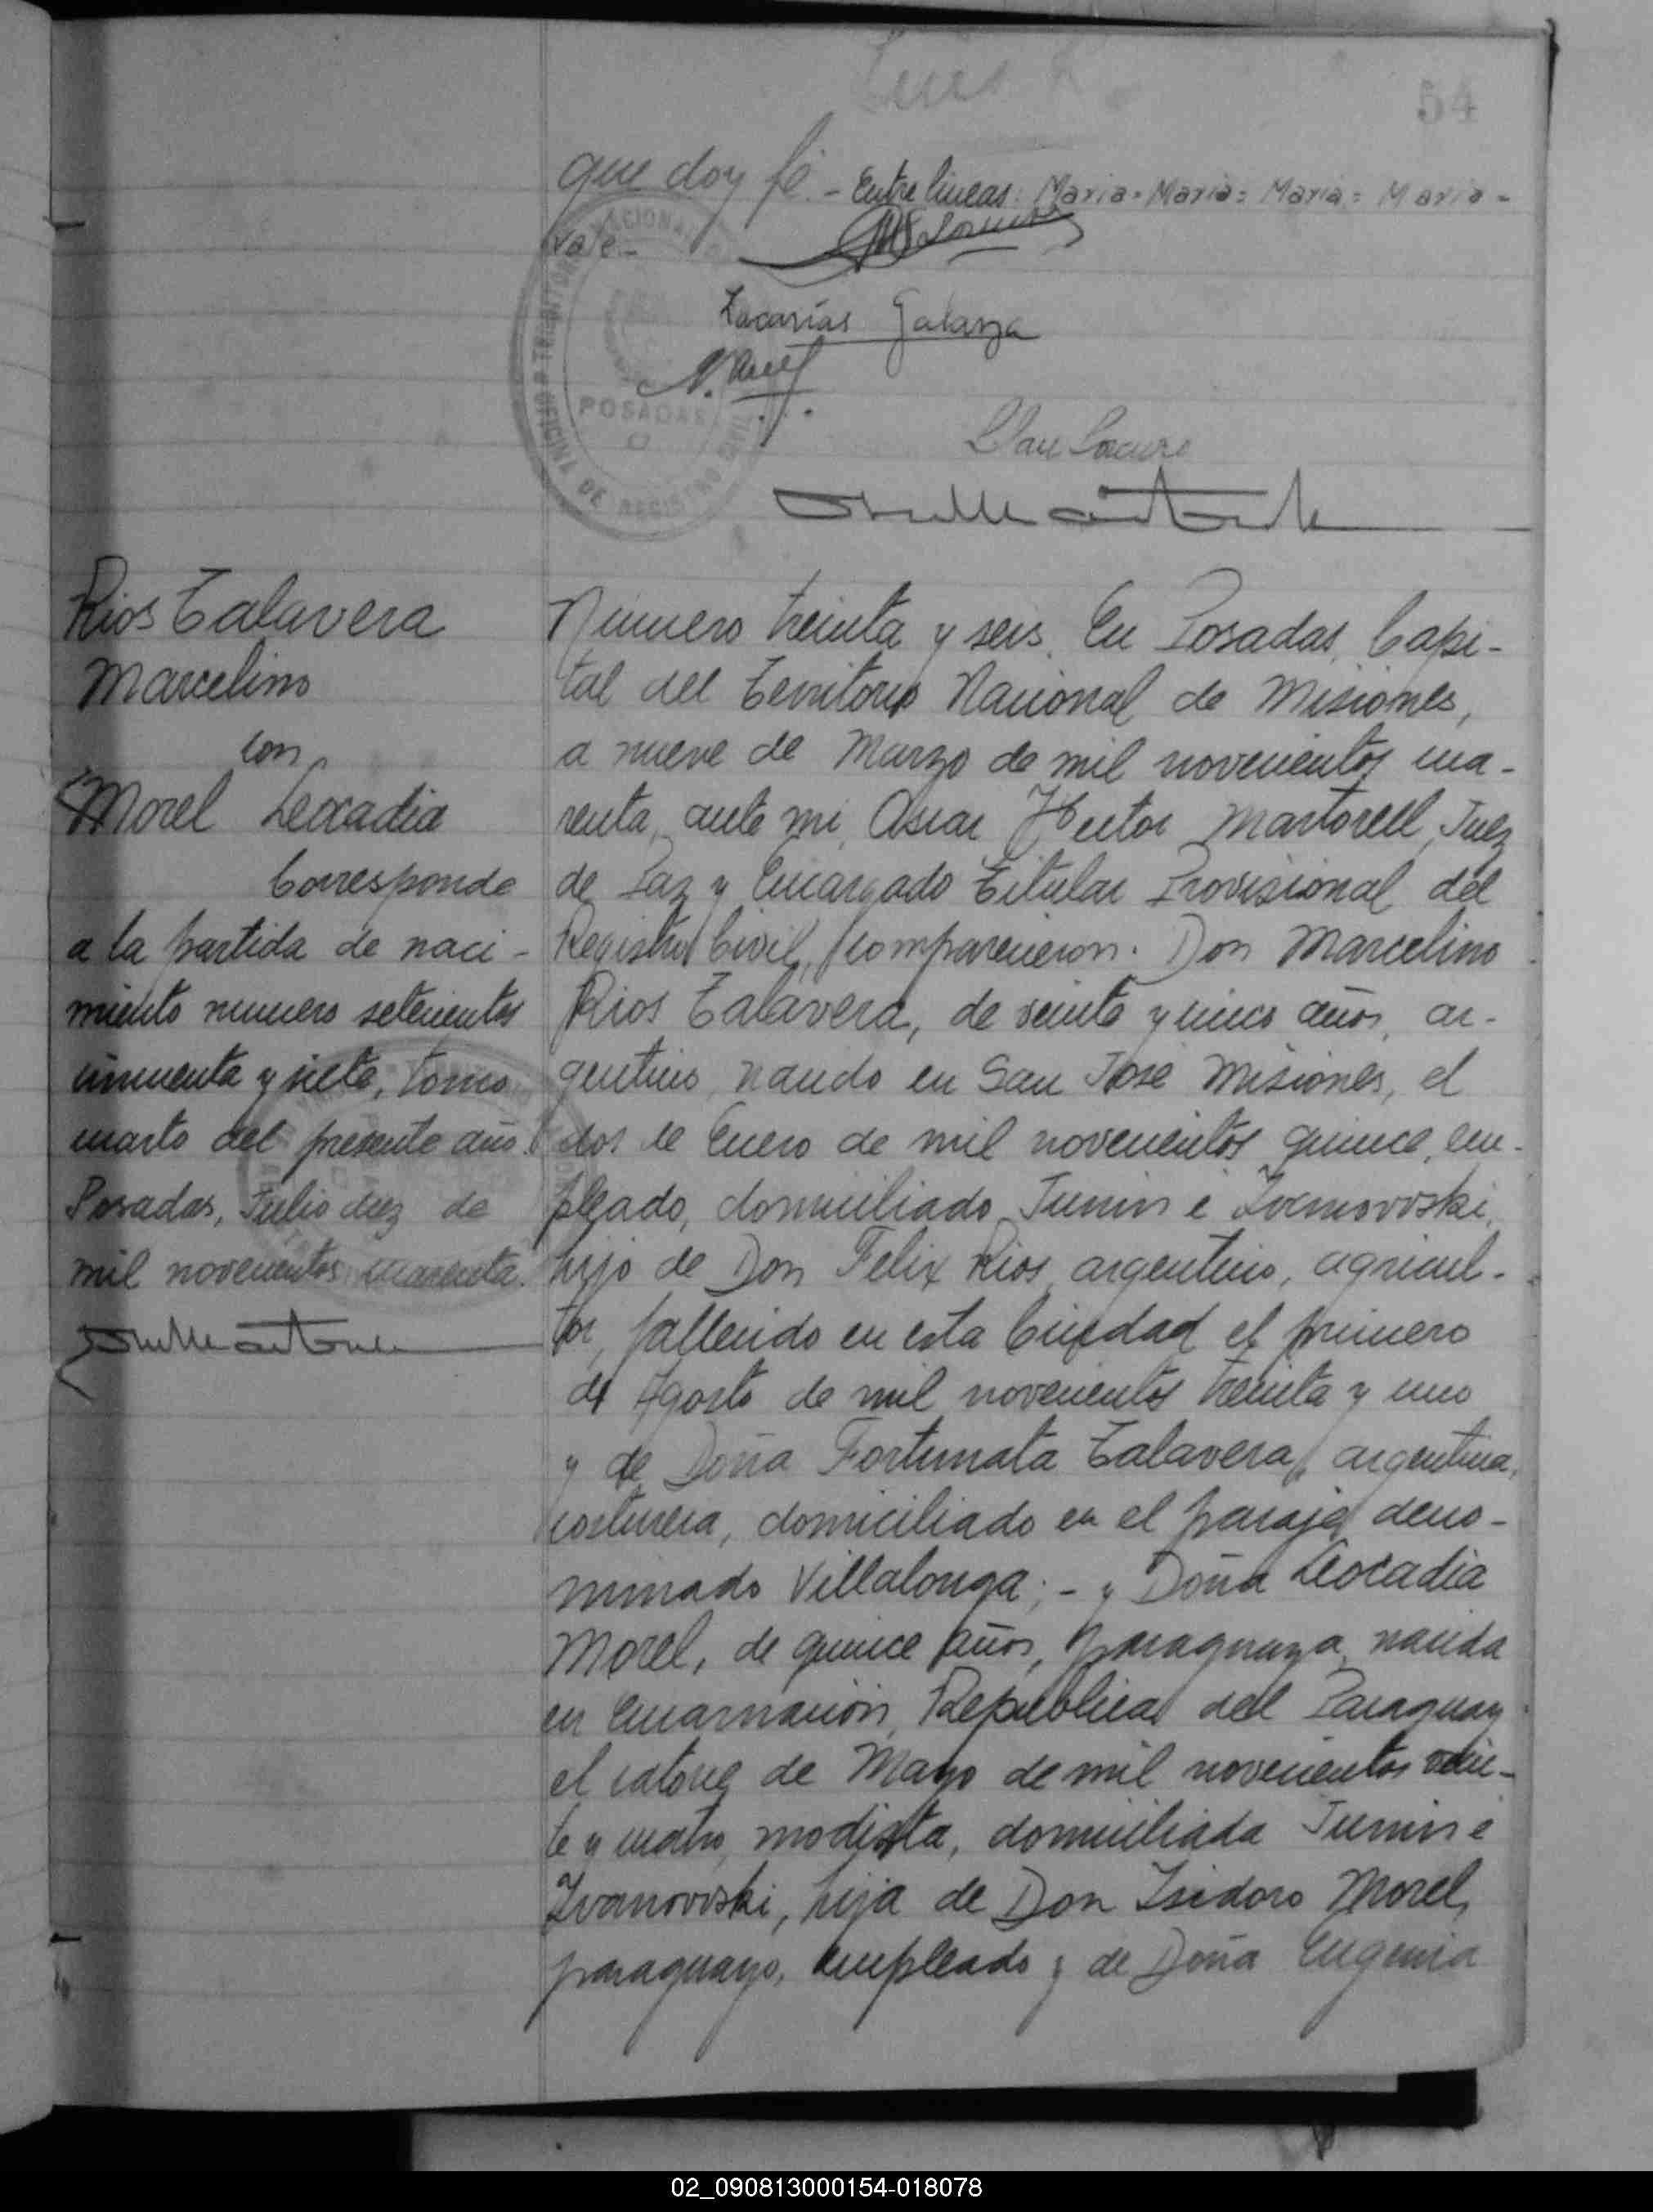 54
que doy fé.- Entre lineas: Maria=Maria=Maria=Maria-
vale-
Zacarías Galarza
POSADAS
OFICINA DE REGISTRO CIVIL
Rios Talavera
Marcelino
con
Morel Leocadia
Corresponde
a la partida de naci-
miento numero setecientos
cincuenta y siete, tomo
cuarto del presente año.
Posadas, Julio diez de
mil novecientos cuarenta.
Número treinta y seis. En Posadas, Capi-
tal del Territorio Nacional de Misiones,
a nueve de Marzo de mil novecientos cua-
renta, ante mi, Oscar Hector Martorell, Juez
de Paz y Encargado Titular Provisional del
Registro Civil, comparecieron: Don Marcelino
Rios Talavera, de veinte y cinco años, ar-
gentino, nacido en San José Misiones, el
dos de Enero de mil novecientos quince, em-
pleado, domiciliado Junin e Ivanovski,
hijo de Don Felix Rios, argentino, agricul-
tor, fallecido en esta Ciudad el primero
de Agosto de mil novecientos treinta y uno
y de Doña Fortunata Talavera, argentina,
costurera, domiciliado en el paraje deno-
minado Villalonga; - y Doña Leocadia
Morel, de quince años, paraguaya, nacida
en Encarnación, Republica del Paraguay
el catorce de Mayo de mil novecientos vein-
te y cuatro, modista, domiciliada Junin e
Ivanovski, hija de Don Isidoro Morel,
paraguayo, empleado y de Doña Eugenia
02_090813000154-018078